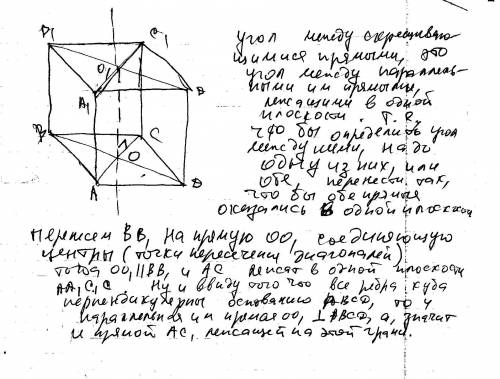 D₁
C₁
O₁
A₁
B
C
O
A
B
угол между скрещиваю-
щимися прямыми, это
угол между параллель-
ными им прямыми,
лежащими в одной
плоскости. Т.е.
что бы определить угол
между ними, надо
одну из них, или
обе, перенести так,
что бы обе прямые
оказались в одной плоскости
Перенесем BB₁ на прямую OO₁ соединяющую
центры (точки пересечения диагоналей)
тогда OO₁||BB₁ и AC лежат в одной плоскости
AA₁C₁C. Ну и ввиду того что все ребра куба
перпендикулярны основанию ABCD, то и
параллельная им прямая OO₁ ⊥ ABCD, а, значит
и прямой AC, лежащей на этой грани.